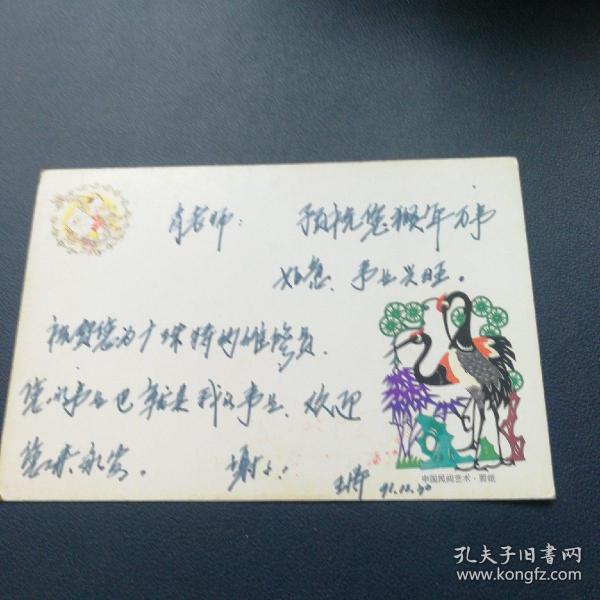 肖老师： 预祝您猴年万事
如意、事业兴旺。
祝贺您为广深特约维修员.
您的事业也就是我的事业. 欢迎
您来永安。 谢谢!
91.12.30
中国民间艺术·剪纸
孔夫子旧书网
www.kongfz.com